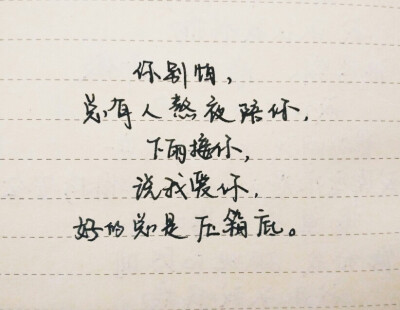 你别怕，
总有人熬夜陪你，
下雨接你，
说我爱你，
好的总是压箱底。